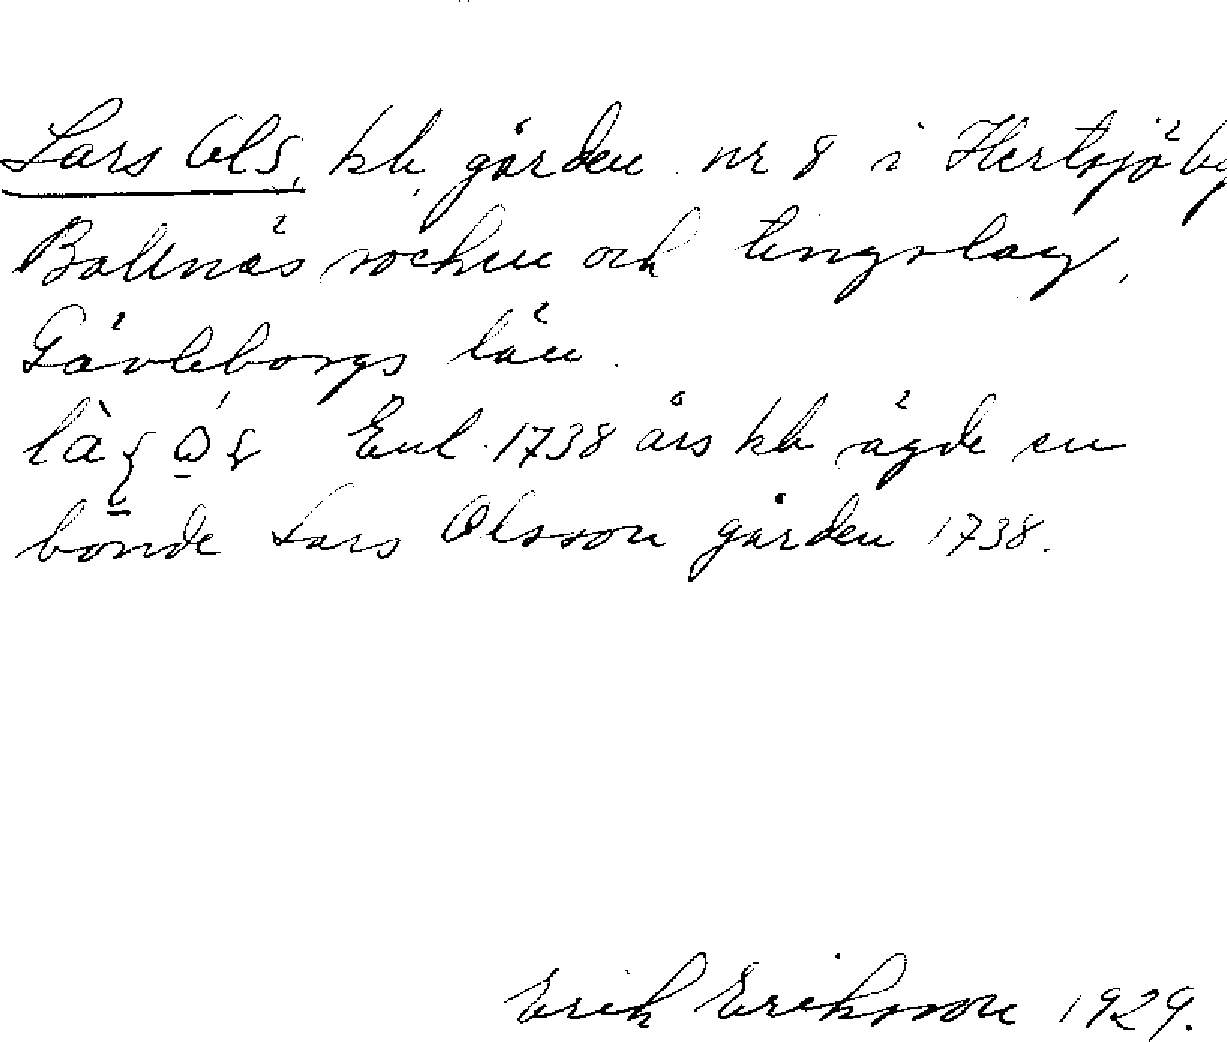 Lars Ols, kb, gården nr 8 i Hertsjö by
Bollnäs socken och tingslag,
Gävleborgs län.
Enl. 1738 års kb ägde en
bonde Lars Olsson gården 1738.
Erik Eriksson 1929.